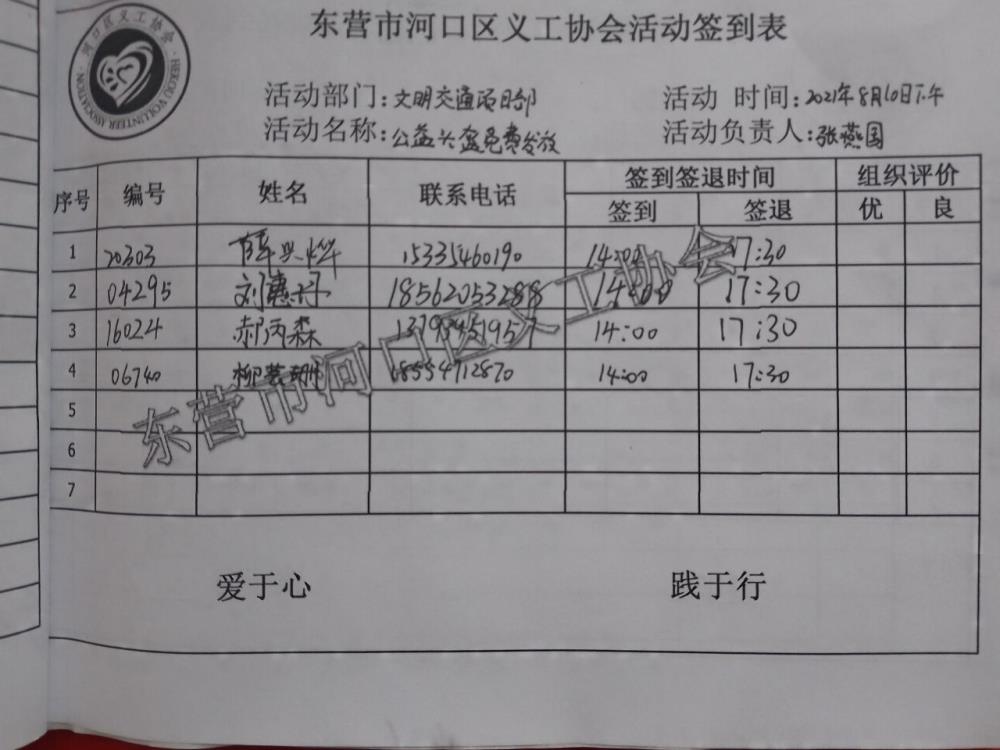 东营市河口区义工协会活动签到表
河口区义工协会
HEKOU VOLUNTEER ASSOCIATION
活动部门：文明交通项目部 活动 时间：2021年8月10日下午
活动名称：公益头盔免费发放 活动负责人：张燕国
序号 编号 姓名 联系电话 签到签退时间 组织评价
签到 签退 优 良
1 20303 薛兴烨 15335460190 14:00 17:30
2 04295 刘惠丹 18562053288 14:00 17:30
3 16024 郝丙森 14:00 17:30
4 06740 柳 18554712870 14:00 17:30
5
6
7
东营市河口区义工协会
爱于心 践于行